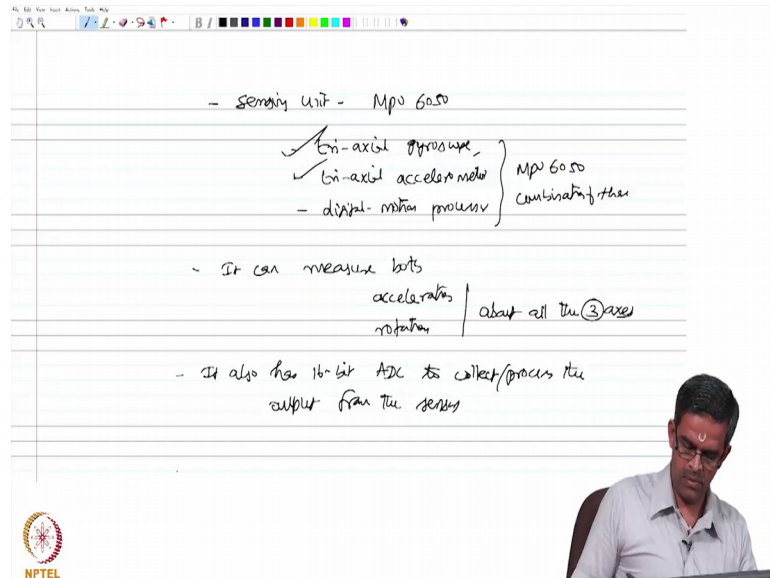 File Edit View Insert Actions Tools Help
B I
- Sensing Unit - MPU 6050
tri-axial gyroscope,
tri-axial accelerometer
- digital-motion processor
MPU 6050
combination of these
- It can measure both
acceleration
rotation
about all the 3 axes
- It also has 16-bit ADC to collect/process the
output from the sensors
NPTEL